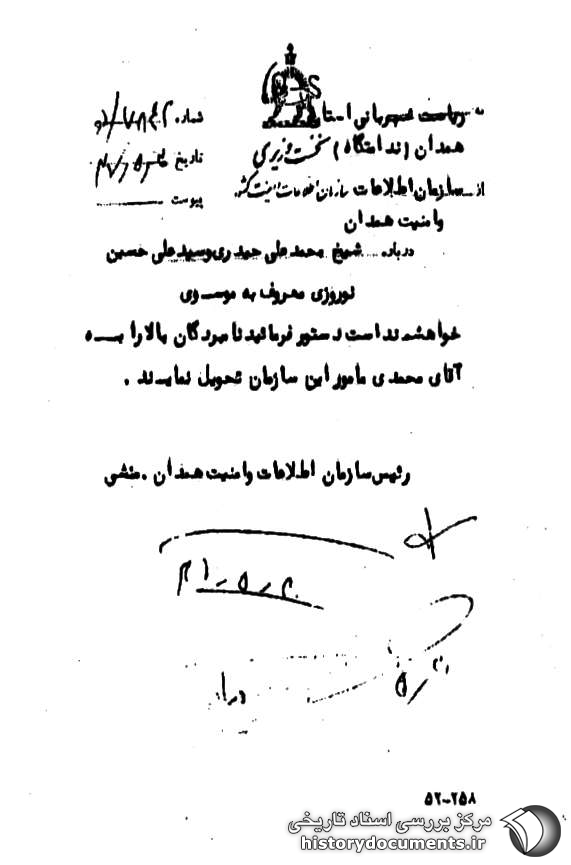 به ریاست شهربانی استان
شماره
همدان (ندامتگاه)
نخست وزیری
تاریخ
از سازمان اطلاعات
سازمان اطلاعات و امنیت کشور
پیوست
وامنیت همدان
درباره شیخ محمد علی حیدری وسید علی حسین
نوروزی معروف به موسوی
خواهشمند است دستور فرمائید نامبردگان بالا را بـــه
آقای محمدی مامور این سازمان تحویل نمایند .
رئیس سازمان اطلاعات وامنیت همدان . منشی
۵۲-۲۵۸
مرکز بررسی اسناد تاریخی
historydocuments.ir